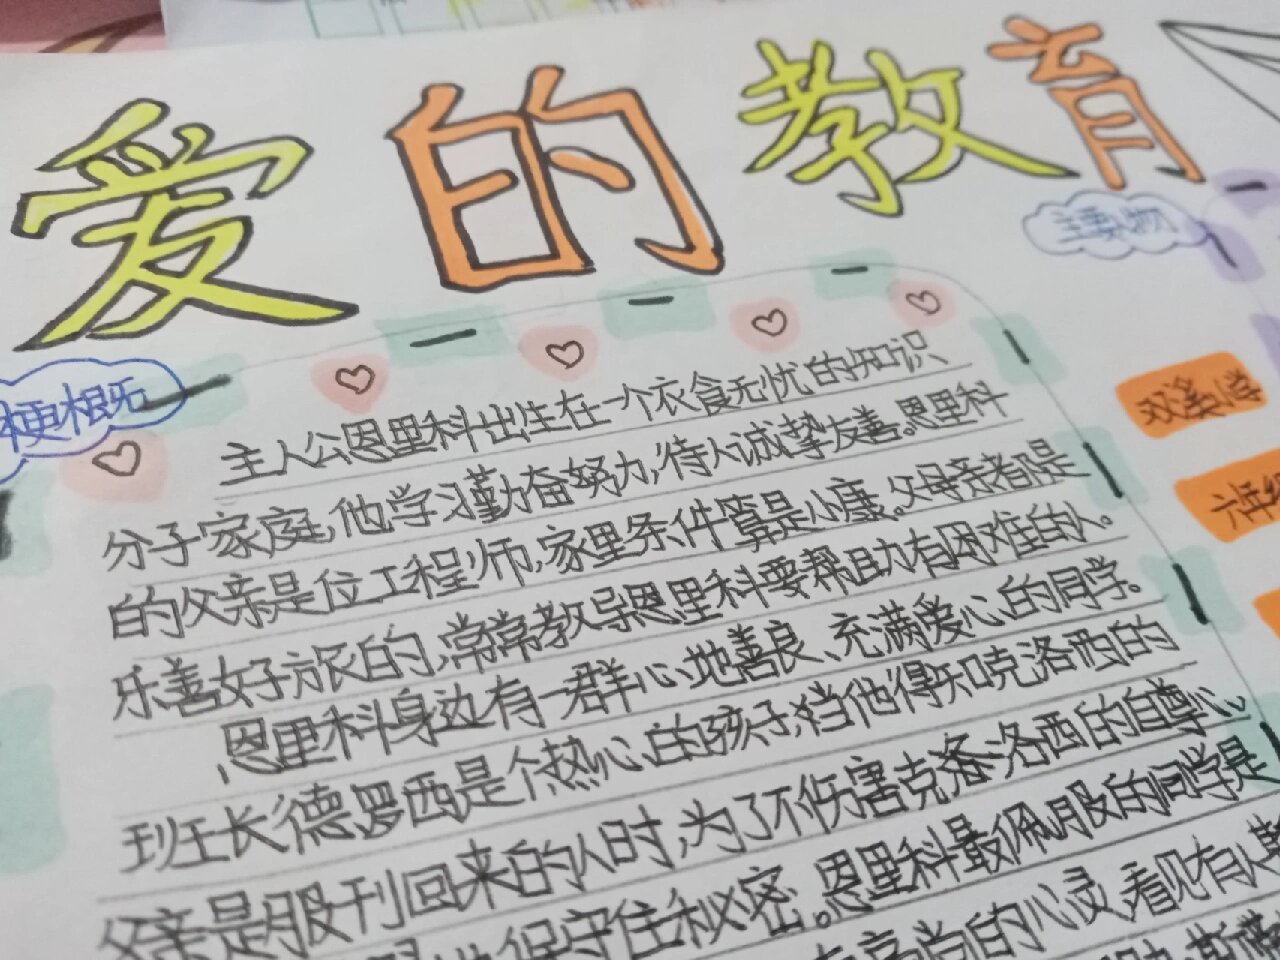 爱的教育
主要人物
梗概
主人公恩里科出生在一个衣食无忧的知识
分子家庭,他学习勤奋努力,待人诚挚友善。恩里科
的父亲是位工程师,家里条件算是小康。父母亲都是
乐善好施的,常常教导恩里科要帮助有困难的人。
恩里科身边有一群心地善良、充满爱心的同学。
班长德罗西是个热心的孩子,当他得知克洛西的
父亲是服刑回来的人时,为了不伤害克洛洛西的自尊心
保守住秘密。恩里科最佩服的同学是
高尚的心灵,看见有人
双溪小学
六年级